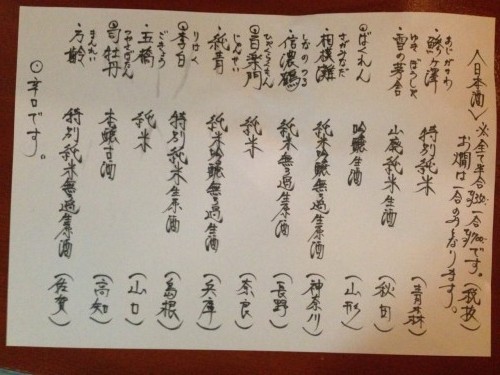 〈日本酒〉 ※全て半合¥350- 一合¥700-です。(税抜)
お燗は一合のみとなります。
・鯵ヶ澤 あじがさわ 特別純米 (青森)
・雪の茅舎 ゆきのぼうしゃ 山廃純米生酒 (秋田)
◎ばくれん 吟醸生酒 (山形)
・相模灘 さがみなだ 純米吟醸無ろ過生原酒 (神奈川)
・信濃鶴 しなのつる 純米無ろ過生原酒 (長野)
◎百楽門 ひゃくらくもん 純米 (奈良)
・純青 じゅんせい 純米吟醸無ろ過生酒 (兵庫)
◎李白 りはく 特別純米生原酒 (島根)
・五橋 ごきょう 純米 (山口)
◎司牡丹 つかさぼたん 本醸造酒 (高知)
・万齢 まんれい 特別純米無ろ過生原酒 (佐賀)
◎辛口です。